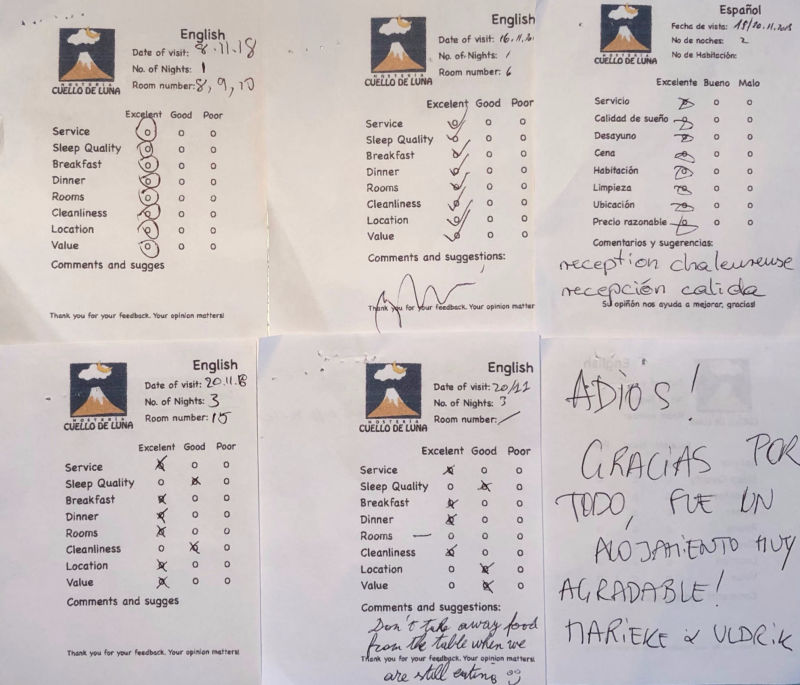 English
HOSTERÍA
CUELLO DE LUNA
Date of visit: 8.11.18
No. of Nights: 1
Room number: 8, 9, 10
Excelent Good Poor
Service
Sleep Quality
Breakfast
Dinner
Rooms
Cleanliness
Location
Value
Comments and sugges
Thank you for your feedback. Your opinion matters!
English
HOSTERÍA
CUELLO DE LUNA
Date of visit: 16.11.201
No. of Nights: 1
Room number: 6
Excelent Good Poor
Service
Sleep Quality
Breakfast
Dinner
Rooms
Cleanliness
Location
Value
Comments and suggestions:
Thank you for your feedback. Your opinion matter
Español
Fecha de vista: 19/20.11.2018
No de noches: 2
No de Habitación:
Excelente Bueno Malo
Servicio
Calidad de sueño
Desayuno
Cena
Habitación
Limpieza
Ubicación
Precio razonable
Comentarios y sugerencias:
reception chaleureuse
recepción calida
Su opiñón nos ayuda a mejorar, gracias!
English
HOSTERÍA
CUELLO DE LUNA
Date of visit: 20.11.18
No. of Nights: 3
Room number: 15
Excelent Good Poor
Service
Sleep Quality
Breakfast
Dinner
Rooms
Cleanliness
Location
Value
Comments and sugges
Thank you for your feedback. Your opinion matters!
English
HOSTERÍA
CUELLO DE LUNA
Date of visit: 20/11
No. of Nights: 3
Room number: /
Excelent Good Poor
Service
Sleep Quality
Breakfast
Dinner
Rooms —
Cleanliness
Location
Value
Comments and suggestions:
Don't take away food
from the table when we
Thank you for your feedback. Your opinion matters!
are still eating
ADIOS!
GRACIAS POR
TODO, FUE UN
ALOJAMIENTO MUY
AGRADABLE!
MARIEKE & ULDRIK